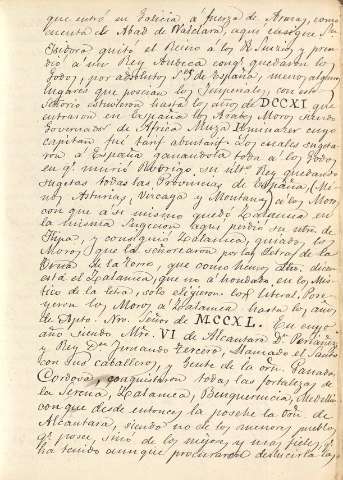 que entró en Galicia, á fuerza de Armas, como
cuenta de Abad de Valclara, aqui caesque Sn
Isidoro quitó el Reino à los R. Suevos y pren
dió á un Rey Audeca conq. quedaron los
Godos, por absolutos Srs. de España, menos algunos
lugares que poseian los Imperiales, con este
Señorio estuvieron hasta los años de DCCXI que
entraron en España los Arabes Moros siendo
Governador de Africa Muza cuyo
capitan fué Tarif abentarif los cuales sugeta
ron á España ganandola toda á los Godos
en q. murió Rodrigo, su ultº Rey quedando
sugetas todas las Provincias de España (Me
nos Asturias, Vizcaya y Montaña) á los Moros
con que a si mismo quedó Zalamea en
la misma sugecion aqui perdió su nombre de
Iupa, y consiguió Zalamea, guiados los
Moros (que la señorearon por las letras de la
de la torre, que como hemos dicho
está el Zalamea, que no ahondada en los Mis
terio de la letra, solo eligieron lo literal. Pose
yeron los Moros á Zalamea hasta los años
de Npto. Nro. Señor de MCCXL. En cuyo
año siendo Mtre. VI de Alcantara Dn. Pedrañez
y Rey Dn. Fernando Tercero, llamado el Santo
con sus caballeros, y gente de la orn. Ganada
Cordova, conquistaron todas las fortalezas de
la Serena, Zalamea, Benquerencia, Medellin
con que desde entonces la poséhe la Orn. de
Alcantara, siendo no de los menores pueblos
q. posee, sinó de los mejores y mas fieles, q.
ha tenido aunque procuraron deslucirla los